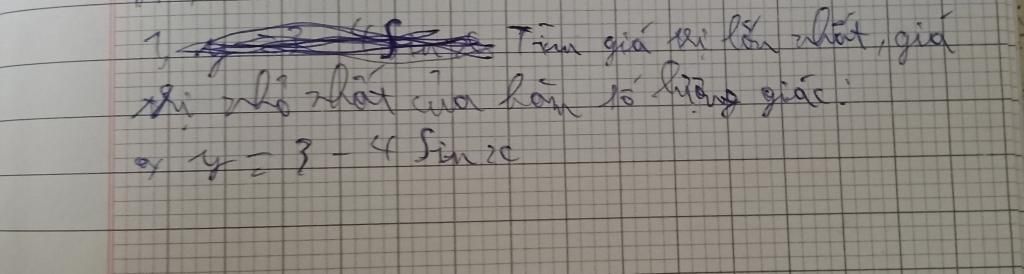 1, Tìm giá trị lớn nhất, giá
trị nhỏ nhất của hàm số lượng giác:
a, y = 3 - 4 sin x